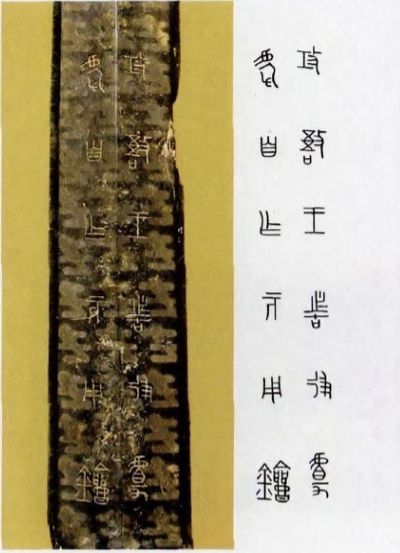 攻敔王者彶
自乍元用鐱
攻敔王者彶
自乍元用鐱